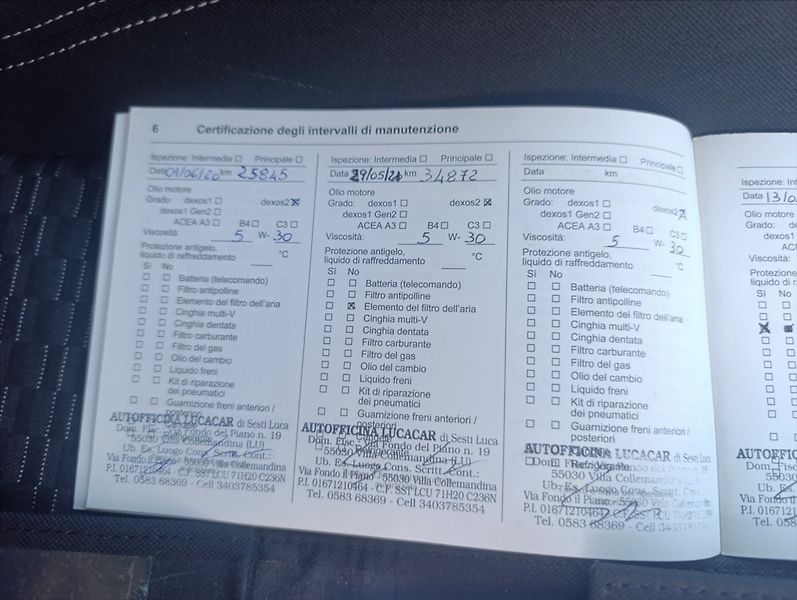 6 Certificazione degli intervalli di manutenzione
Ispezione: Intermedia Principale
Data 01/06/20 km 25845
Olio motore
Grado: dexos1 dexos2
dexos1 Gen2
ACEA A3 B4 C3
Viscosità: 5 W- 30
Protezione antigelo,
liquido di raffreddamento °C
Sì No
Batteria (telecomando)
Filtro antipolline
Elemento del filtro dell'aria
Cinghia multi-V
Cinghia dentata
Filtro carburante
Filtro del gas
Olio del cambio
Liquido freni
Kit di riparazione
dei pneumatici
Guarnizione freni anteriori /
posteriori
AUTOFFICINA LUCACAR di Sesti Luca
Dom. Fisc. Via Fondo del Piano n. 19
55030 Villa Collemandina (LU)
Ub. Es. Luogo Cons. Scritt. Cont.:
Via Fondo il Piano 55030 Villa Collemandina
P.I. 01671210464 - C.F. SST LCU 71H20 C236N
Tel. 0583 68369 - Cell 3403785354
Ispezione: Intermedia Principale
Data 29/05/21 km 34872
Olio motore
Grado: dexos1 dexos2
dexos1 Gen2
ACEA A3 B4 C3
Viscosità: 5 W- 30
Protezione antigelo,
liquido di raffreddamento °C
Sì No
Batteria (telecomando)
Filtro antipolline
Elemento del filtro dell'aria
Cinghia multi-V
Cinghia dentata
Filtro carburante
Filtro del gas
Olio del cambio
Liquido freni
Kit di riparazione
dei pneumatici
Guarnizione freni anteriori /
posteriori
AUTOFFICINA LUCACAR di Sesti Luca
Dom. Fisc. Via Fondo del Piano n. 19
55030 Villa Collemandina (LU)
Ub. Es. Luogo Cons. Scritt. Cont.:
Via Fondo il Piano 55030 Villa Collemandina
P.I. 01671210464 - C.F. SST LCU 71H20 C236N
Tel. 0583 68369 - Cell 3403785354
Ispezione: Intermedia Principale
Data km
Olio motore
Grado: dexos1 dexos2
dexos1 Gen2
ACEA A3 B4 C3
Viscosità: 5 W- 30
Protezione antigelo,
liquido di raffreddamento °C
Sì No
Batteria (telecomando)
Filtro antipolline
Elemento del filtro dell'aria
Cinghia multi-V
Cinghia dentata
Filtro carburante
Filtro del gas
Olio del cambio
Liquido freni
Kit di riparazione
dei pneumatici
Guarnizione freni anteriori /
posteriori
AUTOFFICINA LUCACAR di Sesti Luca
Refrigerante
55030 Villa
Ub. Es. Luogo Cons. Scritt.
Via Fondo il Piano 55030 Villa
P.I. 01671210464 - C.F. SST LCU 71H20
Tel. 0583 68369 - Cell
Ispezione: In
Data 13/0
Olio motore
Grado: de
dexos1
AC
Viscosità:
Protezione
liquido di ra
Sì No
AUTOFFIC
Dom. Fisc
55
Ub. Es.
Via Fondo
P.I. 0167
Tel. 05